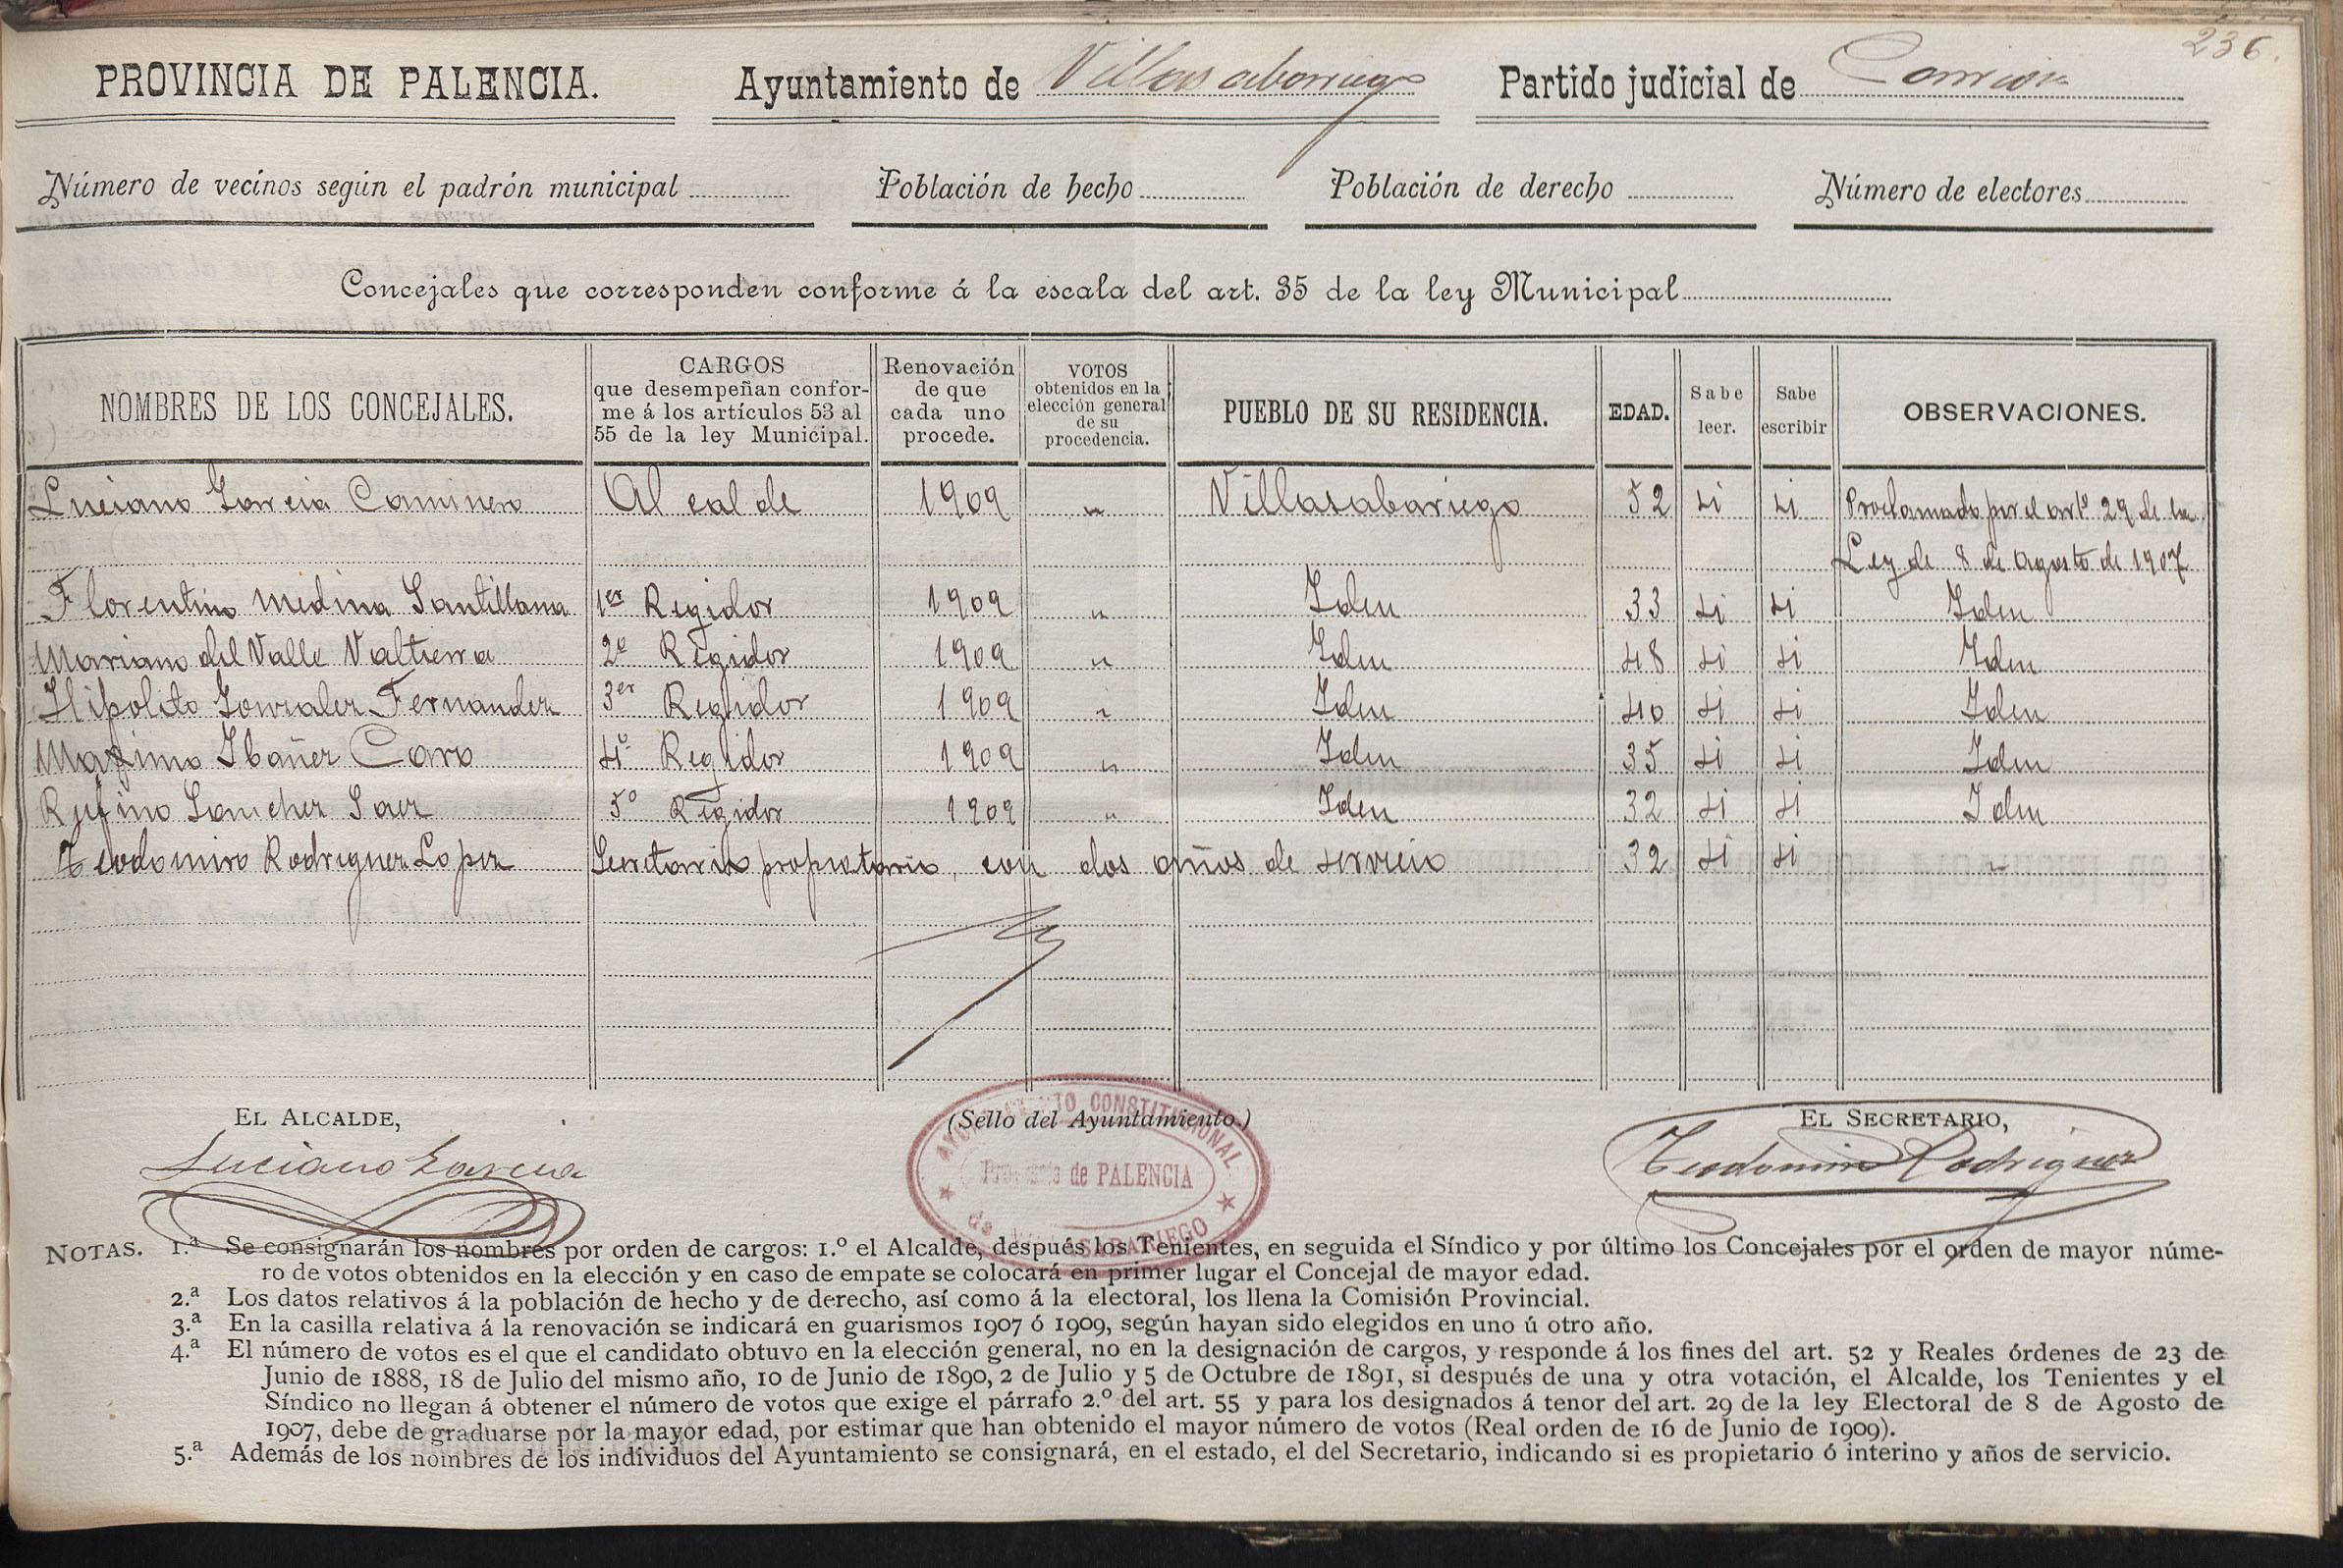 236.
PROVINCIA DE PALENCIA. Ayuntamiento de Villasabariego Partido judicial de Carrion
Número de vecinos según el padrón municipal Población de hecho Población de derecho Número de electores
Concejales que corresponden conforme á la escala del art. 35 de la ley Municipal
NOMBRES DE LOS CONCEJALES. CARGOS que desempeñan confor-me á los artículos 53 al 55 de la ley Municipal. Renovación de que cada uno procede. VOTOS obtenidos en la elección general de su procedencia. PUEBLO DE SU RESIDENCIA. EDAD. Sabe leer. Sabe escribir OBSERVACIONES.
Luciano Garcia Caminero Alcalde 1909 " Villasabariego 52 si si Proclamado por el artº 29 de la
Ley de 8 de Agosto de 1907
Florentino Medina Santillana 1er Regidor 1909 " Iden 33 si si Iden
Mariano del Valle Valtierra 2º Regidor 1909 " Iden 48 si si Iden
Hipolito Gonzalez Fernandez 3er Regidor 1909 " Iden 40 si si Iden
Maximo Ibañez Caro 4º Regidor 1909 " Iden 35 si si Iden
Rufino Sanchez Saez 5º Regidor 1909 " Iden 32 si si Iden
Teodomiro Rodriguez Lopez Secretario propietario, con dos años de servicio 32 si si "
EL ALCALDE, (Sello del Ayuntamiento.) EL SECRETARIO,
Luciano Garcia Teodomiro Rodriguez
AYUNTAMIENTO CONSTITUCIONAL
Provincia de PALENCIA
de VILLASABARIEGO
NOTAS. 1.ª Se consignarán los nombres por orden de cargos: 1.º el Alcalde, después los Tenientes, en seguida el Síndico y por último los Concejales por el orden de mayor núme-
ro de votos obtenidos en la elección y en caso de empate se colocará en primer lugar el Concejal de mayor edad.
2.ª Los datos relativos á la población de hecho y de derecho, así como á la electoral, los llena la Comisión Provincial.
3.ª En la casilla relativa á la renovación se indicará en guarismos 1907 ó 1909, según hayan sido elegidos en uno ú otro año.
4.ª El número de votos es el que el candidato obtuvo en la elección general, no en la designación de cargos, y responde á los fines del art. 52 y Reales órdenes de 23 de
Junio de 1888, 18 de Julio del mismo año, 10 de Junio de 1890, 2 de Julio y 5 de Octubre de 1891, si después de una y otra votación, el Alcalde, los Tenientes y el
Síndico no llegan á obtener el número de votos que exige el párrafo 2.º del art. 55 y para los designados á tenor del art. 29 de la ley Electoral de 8 de Agosto de
1907, debe de graduarse por la mayor edad, por estimar que han obtenido el mayor número de votos (Real orden de 16 de Junio de 1909).
5.ª Además de los nombres de los individuos del Ayuntamiento se consignará, en el estado, el del Secretario, indicando si es propietario ó interino y años de servicio.